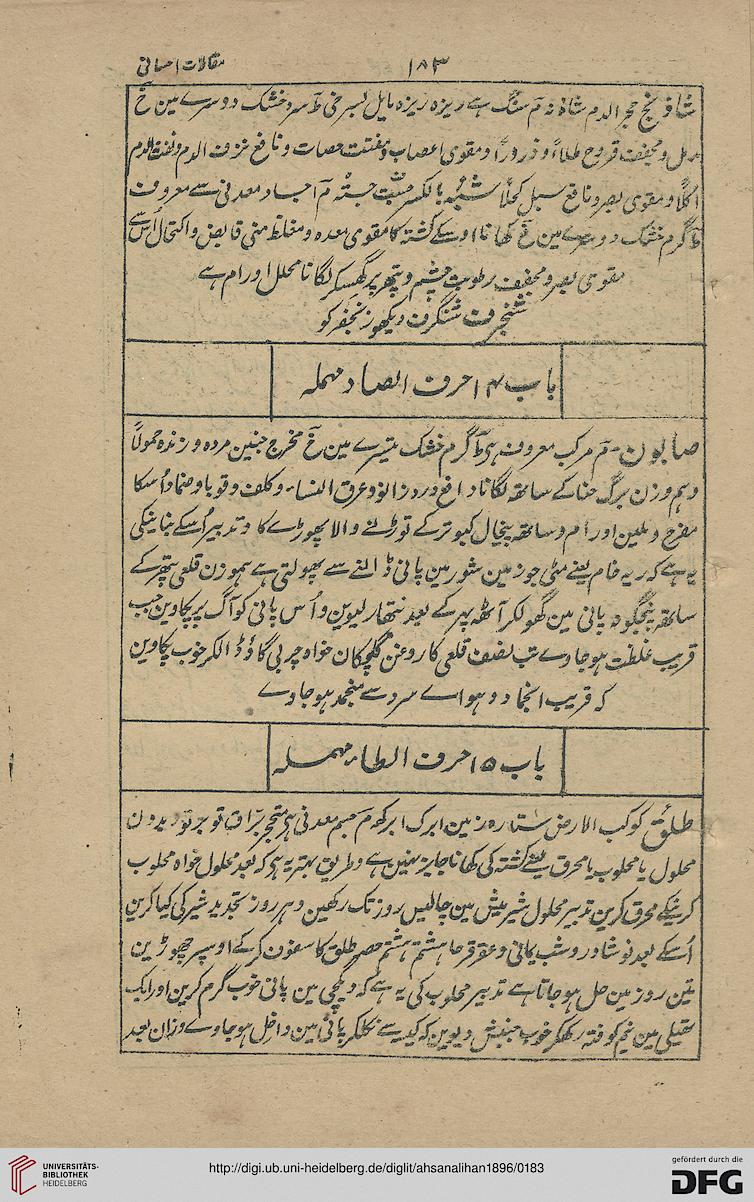 مقالات احسانی
۱۸۳
شادنج حجر الدم شاذنہ م سنگ ہے ریزہ ریزہ مایل بسرخی ط سرد خشک دوسرے مین خ
و مجفف قروح طلاءً و ذروراً و مقوی اعصاب و مفتت حصات و نافع نزف الدم و نفث الدم
اکلًا و مقوی بصر و نافع سبل کحلًا شبہ بالکسر جستہ م اجساد معدنی سے معروف
ط گرم خشک دوسرے مین خ کھانا اوسکے کشتہ کا مقوی معدہ و مغلظ منی قابض و اکتحال اُس سے
مقوی بصر و مجفف رطوبت چشم و پتھر پر گھسکر لگانا محلل اورام ہے
شنجرف شنگرف دیکھو زنجفر کو
باب ۱۴ حرف الصاد مہملہ
صابون م مرکب معروف ہی ط گرم خشک تیسرے مین خ مخرج جنین مردہ و زندہ حمولًا
و ہم وزن برگ حنا کے ساتھ لگانا دافع درد زانو و عرق النساء و کلف و قوبا و ضماد اُسکا
مفرح و ملین اورام و ساتھ پیخال کبوتر کے توڑنے والا پھوڑے کا و تدبیر اُسکے بنانیکی
یہ ہے کہ ریہ خام یعنے مٹی جو زمین شور مین پانی ڈالنے سے پھولتی ہے ہموزن قلعی پتھر کے
ساتھ پنجگونہ پانی مین گھولکر آٹھ پہر کے بعد نتھار لیوین و اُس پانی کو آگ پر پکاوین جب
قریب غلظت ہو جاوے تب نصف قلعی کا روغن گلچکان خواہ چربی گاؤ ڈالکر خوب پکاوین
کہ قریب انجماد و ہواے سرد سے منجمد ہو جاوے
باب ۱۵ حرف الطاء مہملہ
طلق کوکب الارض ستارہ زمین ابرک ابرکھ م جسم معدنی ہی متحجر براق تو بر تو بدون
محلول یا محلوب یا محرق یعنے کشتہ کی کھانا جایز نہین ہے و طریق بہتر یہ ہی کہ بعد محلول خواہ محلوب
کرنیکے محرق کرین تدبیر محلول شیر میش مین چالیس روز تک رکھین و ہر روز تجدید شیر کی کیا کرین
اُسکے بعد نوشادر و شب یمانی و عقرقرحا ہشتم ہشتم حصہ طلق کا سفوف کر کے اوسپر چھوڑین
تین روز مین حل ہو جاتا ہے تدبیر محلوب کی یہ ہے کہ دیگچی مین پانی خوب گرم کرین اور ایک
تھیلی مین نیم کوفتہ رکھکر خوب جنبش دیوین کہ کیسہ سے نکلکر پانی مین داخل ہو جاوے وزان بعد
UNIVERSITÄTS-
BIBLIOTHEK
HEIDELBERG
http://digi.ub.uni-heidelberg.de/diglit/ahsanalihan1896/0183
gefördert durch die
DFG